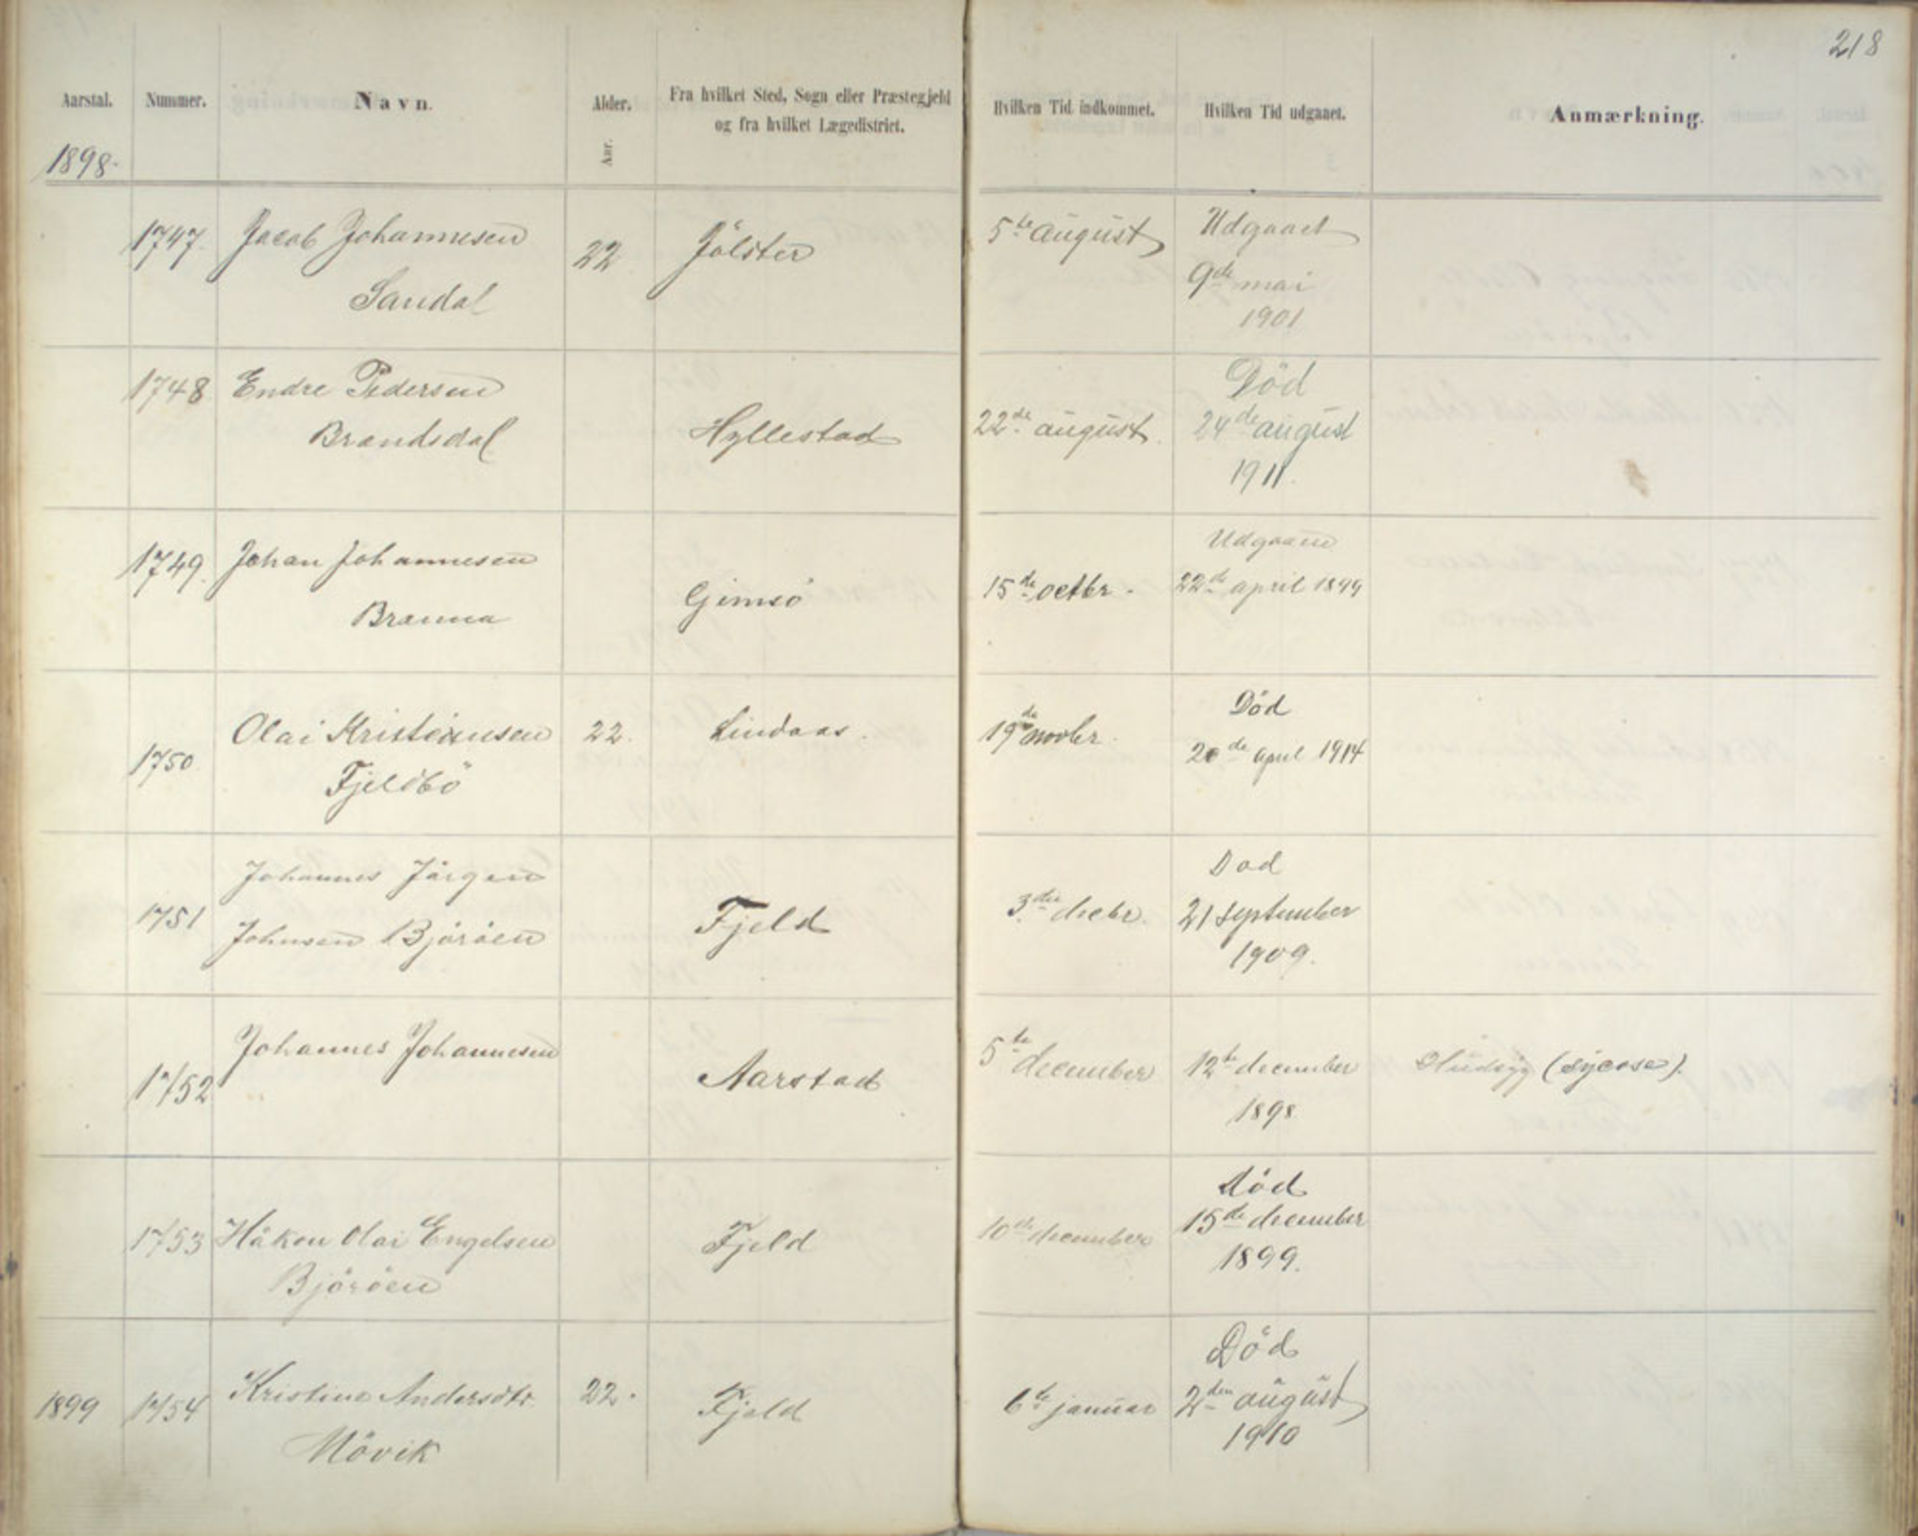 218
Aarstal. Nummer. Navn. Alder. Aar. Fra hvilket Sted, Sogn eller Præstegjeld
og fra hvilket Lægedistrict. Hvilken Tid indkommet. Hvilken Tid udgaaet. Anmærkning.
1898.
1747. Jacob Johannesen 22 Jölster 5te august Udgaaet
Sandal 9de mai
1901
1748 Endre Pedersen Hyllestad 22de august Död
Brandsdal 24de august
1911.
1749. Johan Johannesen Gimsö 15de octbr. Udgaaen
Branna 22de april 1899
1750 Olai Kristiansen 22. Lindaas. 19de novbr. Död
Fjeldbö 20de april 1914
1751 Johannes Jörgen Fjeld 3die decbr. Död
Johnsen Björöen 21 september
1909.
1752 Johannes Johannesen Aarstad 5te december 12te december (sycose).
1898
1753 Håkon Olai Engelsen Fjeld 10de december död
Björöen 15de december
1899.
1899 1754 Kristine Andersdtr. 22. Fjeld 6te januar Död
Mövik 2den august
1910